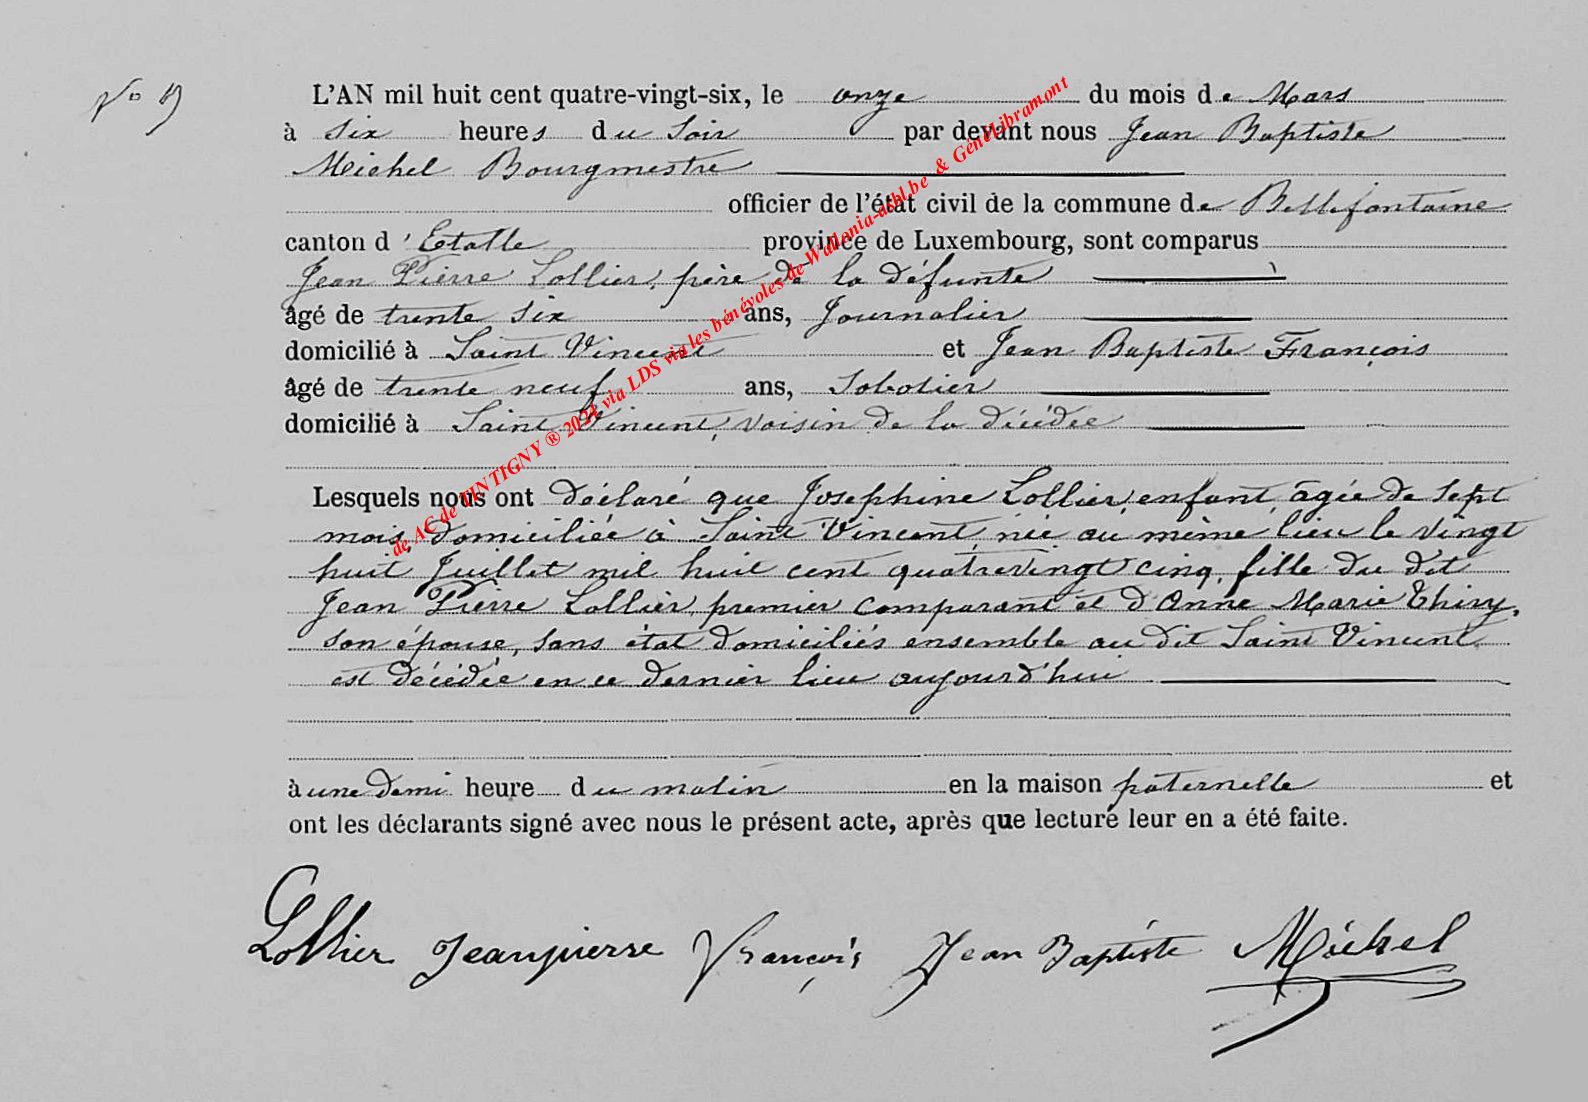 No 19
L'AN mil huit cent quatre-vingt-six, le onze du mois de Mars
à six heures du soir par devant nous Jean Baptiste
Michel Bourgmestre
officier de l'état civil de la commune de Bellefontaine
canton d'Etalle province de Luxembourg, sont comparus
Jean Pierre Lollier, père de la défunte
âgé de trente six ans, Journalier
domicilié à Saint Vincent et Jean Baptiste François
âgé de trente neuf ans, Sabotier
domicilié à Saint Vincent, voisin de la décédée
Lesquels nous ont déclaré que Josephine Lollier, enfant, âgée de sept
mois, domiciliée à Saint Vincent, née au même lieu le vingt
huit Juillet mil huit cent quatrevingt cinq, fille du dit
Jean Pierre Lollier, premier comparant et d'Anne Marie Thiry,
son épouse, sans état domiciliés ensemble au dit Saint Vincent
est décédée en ce dernier lieu aujourd'hui
à une demi heure du matin en la maison paternelle et
ont les déclarants signé avec nous le présent acte, après que lecture leur en a été faite.
Lollier Jeanpierre François Jean Baptiste Michel
de AC de TINTIGNY ® 2024 via LDS via les bénévoles de Wallonia-asbl.be & GénéLibramont